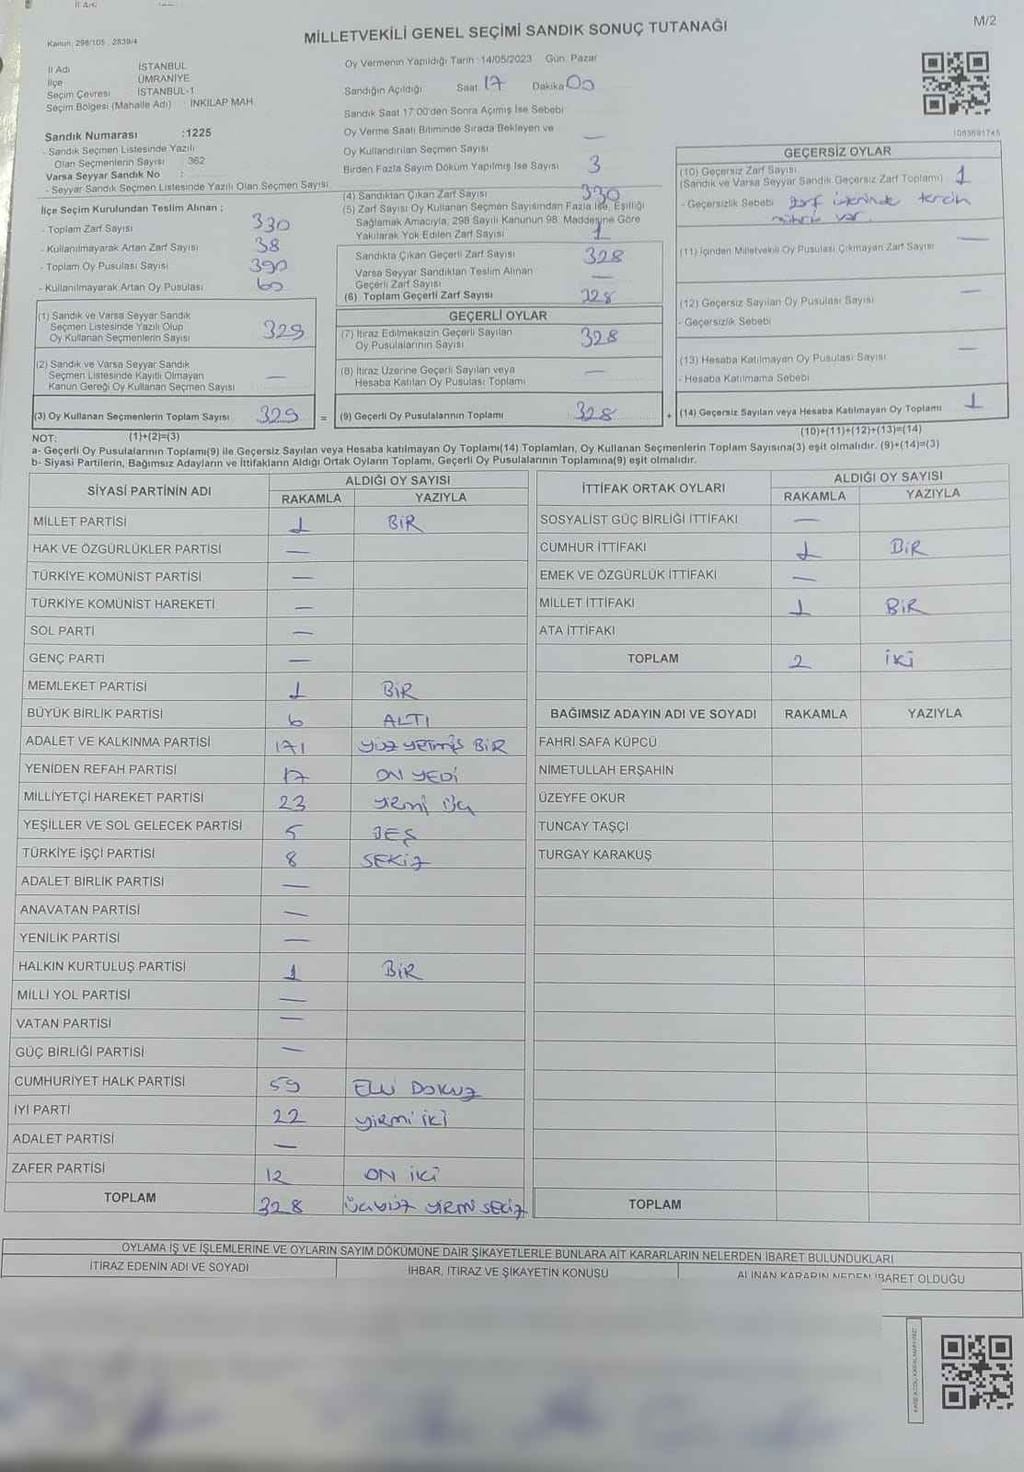 M/2
MİLLETVEKİLİ GENEL SEÇİMİ SANDIK SONUÇ TUTANAĞI
Kanun: 298/105 , 2839/4
İl Adı İSTANBUL
İlçe ÜMRANİYE
Seçim Çevresi İSTANBUL-1
Seçim Bölgesi (Mahalle Adı) : İNKILAP MAH.
Sandık Numarası :1225
- Sandık Seçmen Listesinde Yazılı
Olan Seçmenlerin Sayısı : 362
Varsa Seyyar Sandık No :
- Seyyar Sandık Seçmen Listesinde Yazılı Olan Seçmen Sayısı
İlçe Seçim Kurulundan Teslim Alınan ;
- Toplam Zarf Sayısı 330
- Kullanılmayarak Artan Zarf Sayısı 38
- Toplam Oy Pusulası Sayısı 390
- Kullanılmayarak Artan Oy Pusulası 60
(1) Sandık ve Varsa Seyyar Sandık
Seçmen Listesinde Yazılı Olup
Oy Kullanan Seçmenlerin Sayısı 329
(2) Sandık ve Varsa Seyyar Sandık
Seçmen Listesinde Kayıtlı Olmayan
Kanun Gereği Oy Kullanan Seçmen Sayısı —
(3) Oy Kullanan Seçmenlerin Toplam Sayısı 329 =
Oy Vermenin Yapıldığı Tarih :14/05/2023 Gün: Pazar
Sandığın Açıldığı Saat 17 Dakika 00
Sandık Saat 17:00'den Sonra Açımış İse Sebebi
Oy Verme Saati Bitiminde Sırada Bekleyen ve
Oy Kullandırılan Seçmen Sayısı —
Birden Fazla Sayım Döküm Yapılmış İse Sayısı 3
(4) Sandıktan Çıkan Zarf Sayısı 330
(5) Zarf Sayısı Oy Kullanan Seçmen Sayısından Fazla İse, Eşitliği
Sağlamak Amacıyla, 298 Sayılı Kanunun 98. Maddesine Göre
Yakılarak Yok Edilen Zarf Sayısı 1
Sandıkta Çıkan Geçerli Zarf Sayısı 328
Varsa Seyyar Sandıktan Teslim Alınan
Geçerli Zarf Sayısı —
(6) Toplam Geçerli Zarf Sayısı 328
GEÇERLİ OYLAR
(7) İtiraz Edilmeksizin Geçerli Sayılan
Oy Pusulalarının Sayısı 328
(8) İtiraz Üzerine Geçerli Sayılan veya
Hesaba Katılan Oy Pusulası Toplamı —
(9) Geçerli Oy Pusulalarının Toplamı 328 +
1063691745
GEÇERSİZ OYLAR
(10) Geçersiz Zarf Sayısı
(Sandık ve Varsa Seyyar Sandık Geçersiz Zarf Toplamı) 1
- Geçersizlik Sebebi zarf üzerinde tercih
mührü var.
(11) İçinden Milletvekili Oy Pusulası Çıkmayan Zarf Sayısı —
(12) Geçersiz Sayılan Oy Pusulası Sayısı —
- Geçersizlik Sebebi
(13) Hesaba Katılmayan Oy Pusulası Sayısı —
- Hesaba Katılmama Sebebi
(14) Geçersiz Sayılan veya Hesaba Katılmayan Oy Toplamı 1
NOT: (1)+(2)=(3) (10)+(11)+(12)+(13)=(14)
a- Geçerli Oy Pusulalarının Toplamı(9) ile Geçersiz Sayılan veya Hesaba katılmayan Oy Toplamı(14) Toplamları, Oy Kullanan Seçmenlerin Toplam Sayısına(3) eşit olmalıdır. (9)+(14)=(3)
b- Siyasi Partilerin, Bağımsız Adayların ve İttifakların Aldığı Ortak Oyların Toplamı, Geçerli Oy Pusulalarının Toplamına(9) eşit olmalıdır.
SİYASİ PARTİNİN ADI ALDIĞI OY SAYISI
RAKAMLA YAZIYLA
MİLLET PARTİSİ 1 BİR
HAK VE ÖZGÜRLÜKLER PARTİSİ —
TÜRKİYE KOMÜNİST PARTİSİ —
TÜRKİYE KOMÜNİST HAREKETİ —
SOL PARTİ —
GENÇ PARTİ —
MEMLEKET PARTİSİ 1 BİR
BÜYÜK BİRLİK PARTİSİ 6 ALTI
ADALET VE KALKINMA PARTİSİ 171 YÜZ YETMİŞ BİR
YENİDEN REFAH PARTİSİ 17 ON YEDİ
MİLLİYETÇİ HAREKET PARTİSİ 23 YİRMİ ÜÇ
YEŞİLLER VE SOL GELECEK PARTİSİ 5 BEŞ
TÜRKİYE İŞÇİ PARTİSİ 8 SEKİZ
ADALET BİRLİK PARTİSİ —
ANAVATAN PARTİSİ —
YENİLİK PARTİSİ —
HALKIN KURTULUŞ PARTİSİ 1 BİR
MİLLİ YOL PARTİSİ —
VATAN PARTİSİ —
GÜÇ BİRLİĞİ PARTİSİ —
CUMHURİYET HALK PARTİSİ 59 ELLİ DOKUZ
İYİ PARTİ 22 YİRMİ İKİ
ADALET PARTİSİ —
ZAFER PARTİSİ 12 ON İKİ
TOPLAM 328 ÜÇYÜZ YİRMİ SEKİZ
İTTİFAK ORTAK OYLARI ALDIĞI OY SAYISI
RAKAMLA YAZIYLA
SOSYALİST GÜÇ BİRLİĞİ İTTİFAKI —
CUMHUR İTTİFAKI 1 BİR
EMEK VE ÖZGÜRLÜK İTTİFAKI —
MİLLET İTTİFAKI 1 BİR
ATA İTTİFAKI
TOPLAM 2 İKİ
BAĞIMSIZ ADAYIN ADI VE SOYADI RAKAMLA YAZIYLA
FAHRİ SAFA KÜPCÜ
NİMETULLAH ERŞAHİN
ÜZEYFE OKUR
TUNCAY TAŞÇI
TURGAY KARAKUŞ
TOPLAM
OYLAMA İŞ VE İŞLEMLERİNE VE OYLARIN SAYIM DÖKÜMÜNE DAİR ŞİKAYETLERLE BUNLARA AİT KARARLARIN NELERDEN İBARET BULUNDUKLARI
İTİRAZ EDENİN ADI VE SOYADI İHBAR, İTİRAZ VE ŞİKAYETİN KONUSU ALINAN KARARIN NEDEN İBARET OLDUĞU